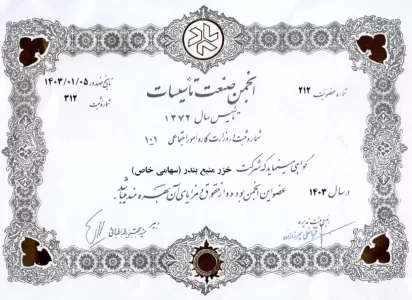 انجمن صنعت تأسیسات
تأسیس سال ۱۳۷۲
شماره ثبت وزارت کار و امور اجتماعی ۱۰۱
شماره عضویت ۲۱۲
تاریخ صدور ۱۴۰۳/۰۱/۰۵
شماره ثبت ۳۱۲
گواهی مینماید که شرکت خزر منبع بندر (سهامی خاص)
در سال ۱۴۰۳ عضو این انجمن بوده و از حقوق و مزایای آن بهره مند میباشد.
دبیر